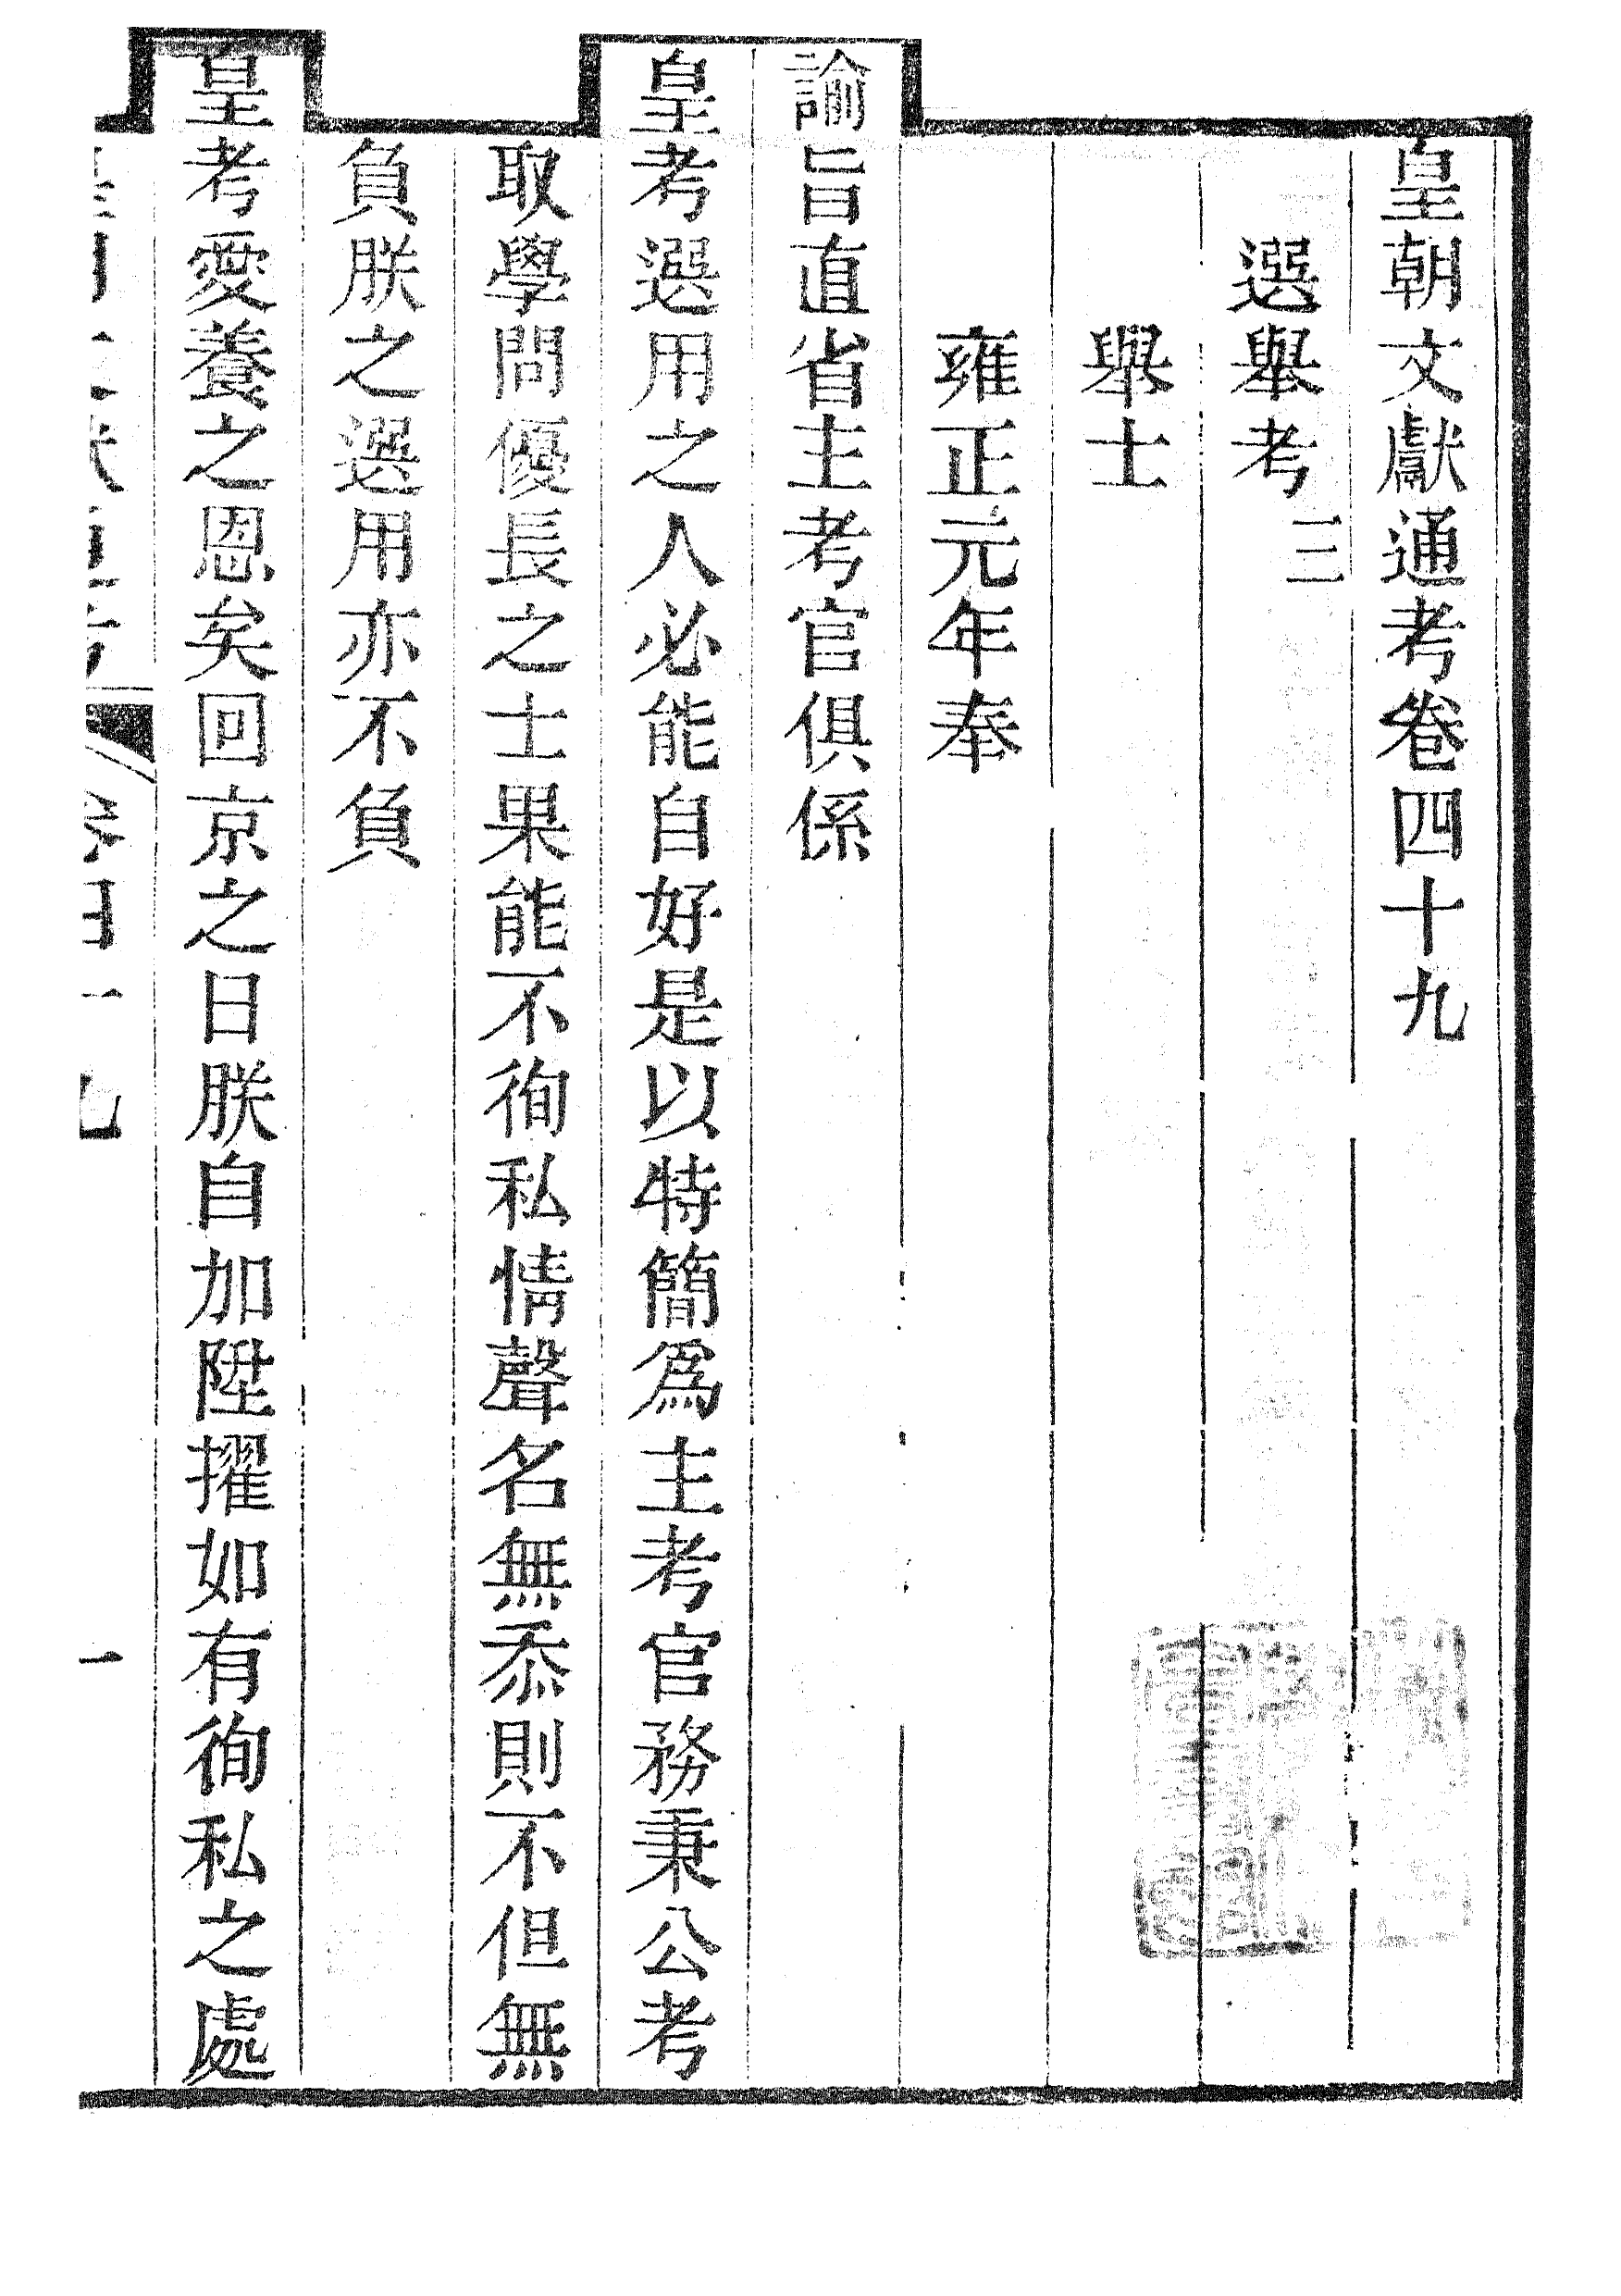 皇朝文獻通考卷四十九
選舉考三
舉士
雍正元年奉
諭旨直省主考官俱係
皇考選用之人必能自好是以特簡爲主考官務秉公考
取學問優長之士果能不徇私情聲名無忝則不但無
負朕之選用亦不負
皇考愛養之恩矣回京之日朕自加陞擢如有徇私之處